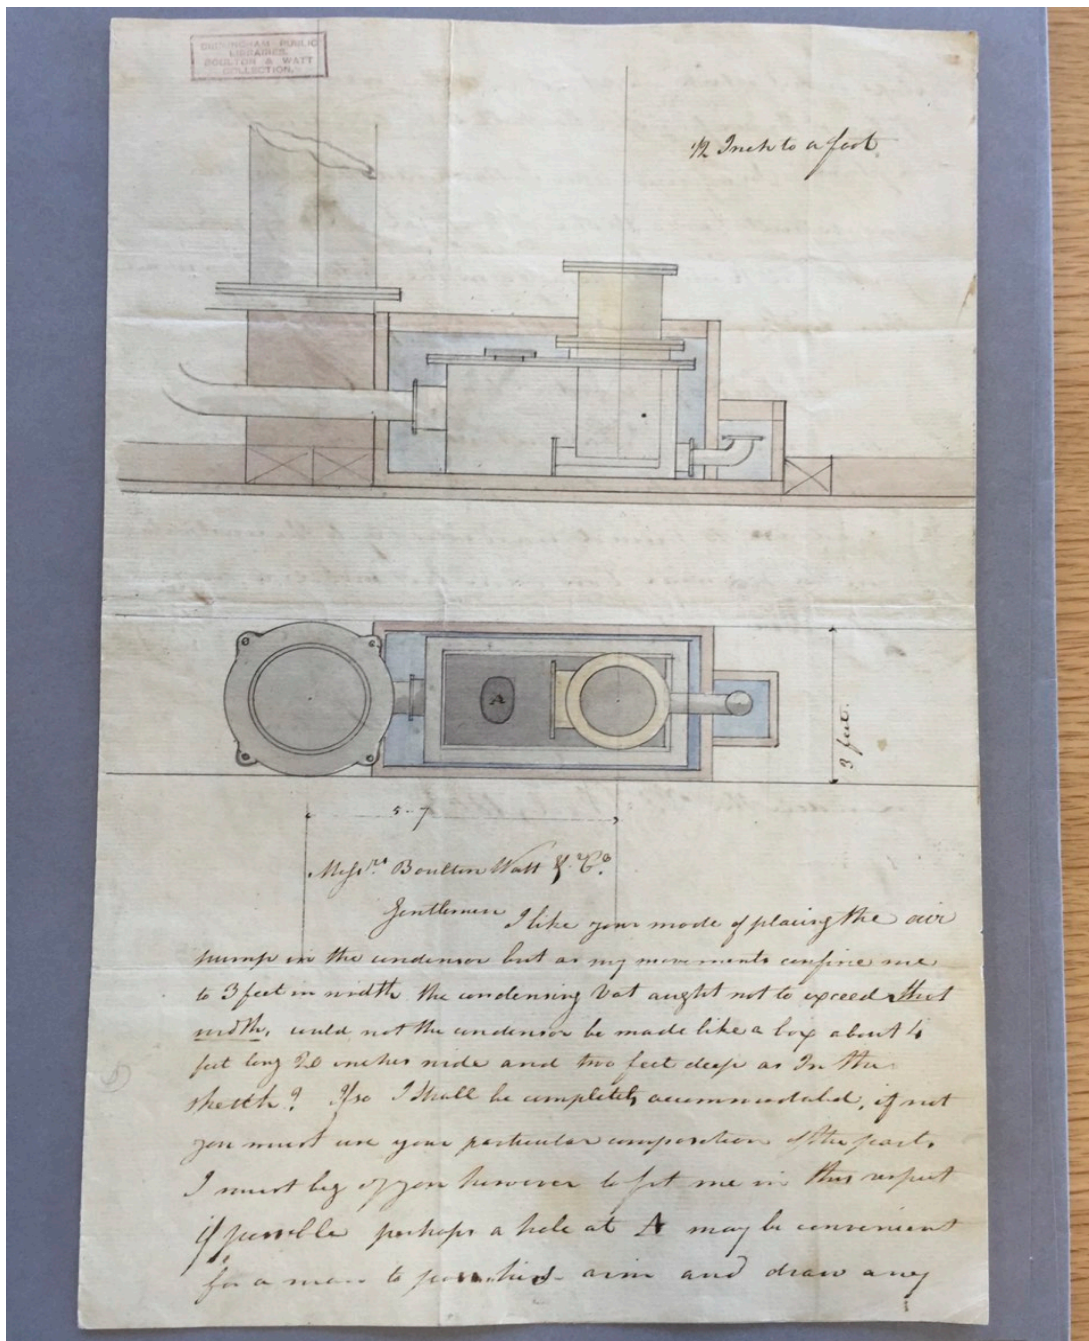 BIRMINGHAM PUBLIC
LIBRARIES
BOULTON & WATT
COLLECTION.
1/2 Inch to a foot
A
3 feet.
5-7
Mess.rs Boulton Watt & Co.
Gentlemen I like your mode of placing the air
pump in the condensor but as my movements confine me
to 3 feet in width the condensing Vat aught not to exceed that
width, could not the condensor be made like a box about 4
feet long 20 inches wide and two feet deep as In the
sketch? If so I shall be completely accommodated, if not
you must use your particular composition of the parts
I must beg of you however to fit me in this respect
if possible perhaps a hole at A may be convenient
for a man to his arm and draw any